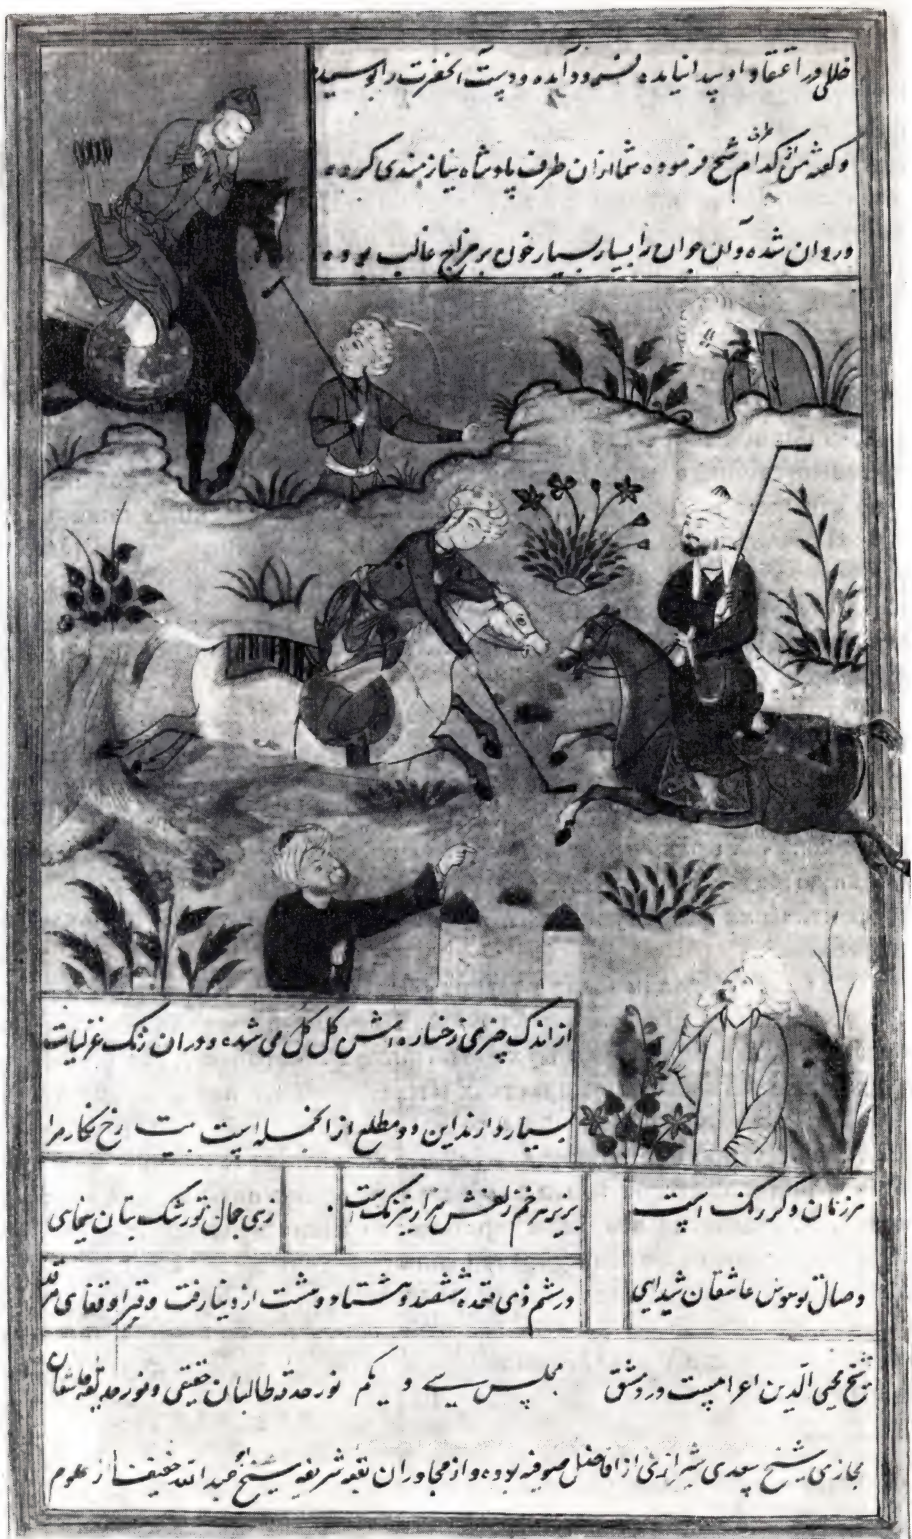 خللی در اعتقاد او پیدا نیامده فرود آمده و دست آنحضرت را بوسیده
و گفته من کدام شیخ فرموده شما از آن طرف پادشاه نیازمندی کرده
و روان شده و آن جوان را بسیار بسیار خون بر مزاج غالب بوده
از اندک چیزی رخساره‌اش گل گل می شده و در آن رنگ غزلیات
بسیار دارند این دو مطلع از آنجمله است بیت رخ نگار مرا
هر زمان دگر رنگ است
بزیر هر خم زلفش هزار نیرنگ است
زهی جمال تو رشک بتان یغمای
وصال تو هوس عاشقان شیدایی
در ششم ذی قعده ششصد و هشتاد و هشت از دنیا رفت و قبر او قفای مرقد
شیخ محیی الدین اعرابیست در دمشق مجلس سی و یکم نور حدقه طالبان حقیقی و نور حدیقه عاشقان
مجازی شیخ سعدی شیرازی از افاضل صوفیه بوده و از مجاوران بقعه شریفه شیخ عبدالله خفیف از علوم